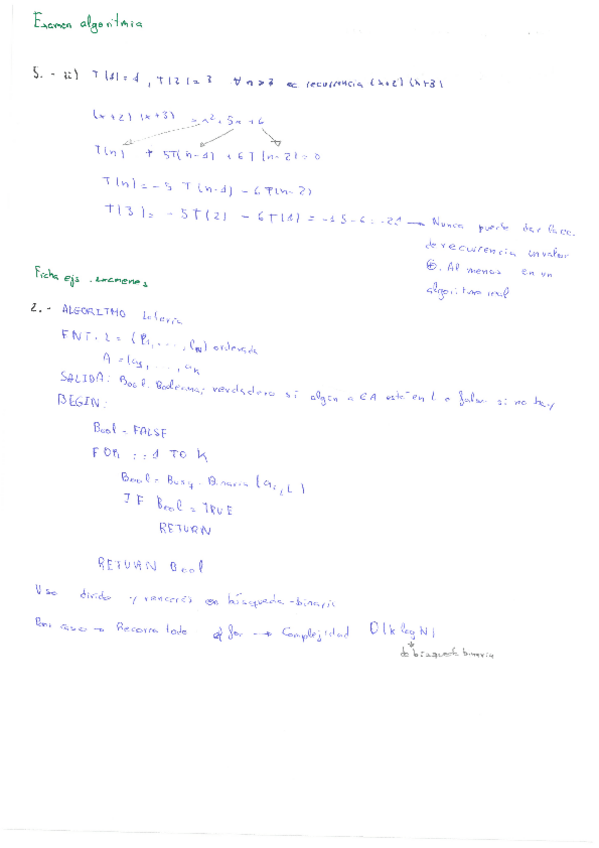 Examen algoritmia
5. - ii) T(1)=1, T(2)=3 ∀n≥3 ec recurrencia (x+2)(x+3)
(x+2)(x+3) = x²+5x+6
T(n) + 5T(n-1) + 6T(n-2)=0
T(n)=-5 T(n-1) - 6T(n-2)
T(3)= -5T(2) - 6T(1) = -15-6 = -21 → Nunca puede dar
de recurrencia un valor
⊖. Al menos en un
algoritmo real
Ficha ejs. exámenes
2.- ALGORITMO Lotería
ENT. L = {l₁, ..., lN} ordenada
A = {a₁, ..., aK
SALIDA: Bool. Booleana; verdadero si algún a ∈ A está en L o falso si no hay
BEGIN:
Bool = FALSE
FOR i=1 TO K
Bool = Busq-Binaria (ai, L)
IF Bool = TRUE
RETURN
RETURN Bool
Uso divide y vencerás en búsqueda-binaria
Peor caso → Recorra todo el for → Complejidad O(k log N)
de búsqueda binaria